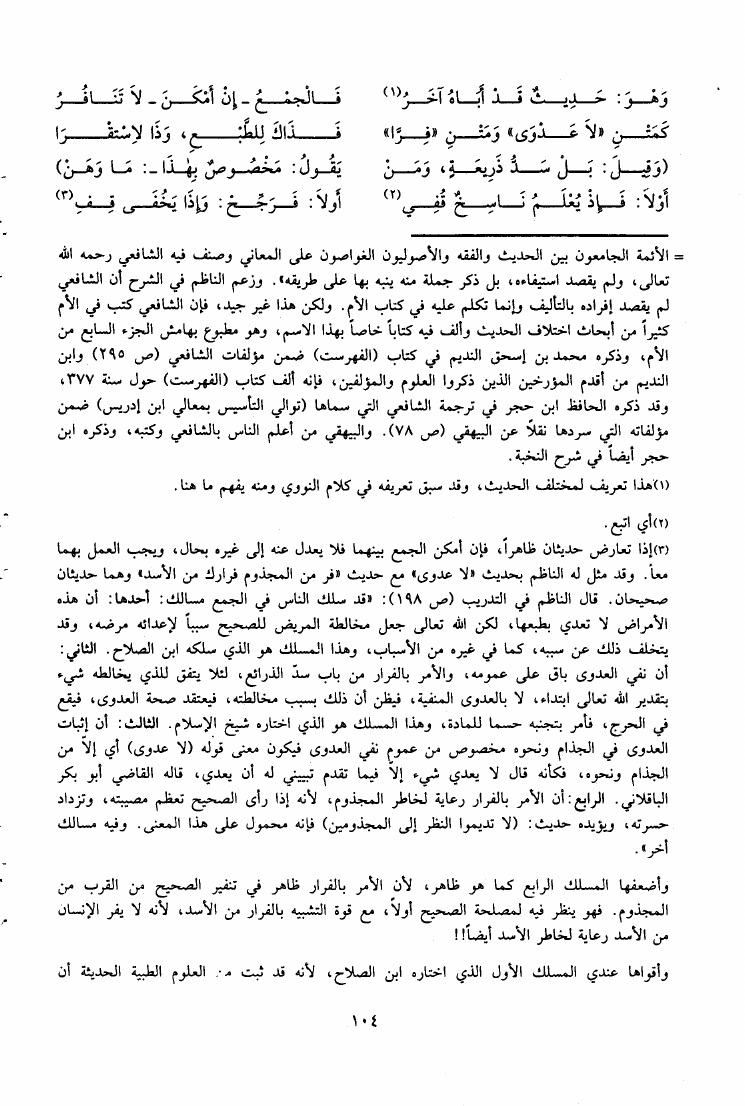 وَهْوَ: حَدِيثٌ قَدْ أَبَاهُ آخَرُ(١) فَالْجَمْعُ - إِنْ أَمْكَنَ - لاَ تَنَافُرُ
كَمَتْنِ «لاَ عَدْوَى» وَمَتْنِ «فِرَّا» فَذَاكَ لِلطَّبْعِ، وَذَا لاِسْتِقْرَا
(وَقِيلَ: بَلْ سَدُّ ذَرِيعَةٍ، وَمَنْ يَقُولُ: مَخْصُوصٌ بِهٰذَا -: مَا وَهَنْ)
أَوْلاَ: فَإِذْ يُعْلَمُ نَاسِخٌ قُفِي(٢) أَولاَ: فَرَجِّحْ: وَإِذَا يَخْفَى قِفِ(٣)
= الأئمة الجامعون بين الحديث والفقه والأصوليون الغواصون على المعاني وصنف فيه الشافعي رحمه الله
تعالى، ولم يقصد استيفاءه، بل ذكر جملة منه ينبه بها على طريقه». وزعم الناظم في الشرح أن الشافعي
لم يقصد إفراده بالتأليف وإنما تكلم عليه في كتاب الأم. ولكن هذا غير جيد، فإن الشافعي كتب في الأم
كثيراً من أبحاث اختلاف الحديث وألف فيه كتاباً خاصاً بهذا الاسم، وهو مطبوع بهامش الجزء السابع من
الأم، وذكره محمد بن إسحق النديم في كتاب (الفهرست) ضمن مؤلفات الشافعي (ص ٢٩٥) وابن
النديم من أقدم المؤرخين الذين ذكروا العلوم والمؤلفين، فإنه ألف كتاب (الفهرست) حول سنة ٣٧٧،
وقد ذكره الحافظ ابن حجر في ترجمة الشافعي التي سماها (توالي التأسيس بمعالي ابن إدريس) ضمن
مؤلفاته التي سردها نقلاً عن البيهقي (ص ٧٨). والبيهقي من أعلم الناس بالشافعي وكتبه، وذكره ابن
حجر أيضاً في شرح النخبة.
(١) هذا تعريف لمختلف الحديث، وقد سبق تعريفه في كلام النووي ومنه يفهم ما هنا.
(٢) أي اتبع.
(٣) إذا تعارض حديثان ظاهراً، فإن أمكن الجمع بينهما فلا يعدل عنه إلى غيره بحال، ويجب العمل بهما
معاً. وقد مثل له الناظم بحديث «لا عدوى» مع حديث «فر من المجذوم فرارك من الأسد» وهما حديثان
صحيحان. قال الناظم في التدريب (ص ١٩٨): «قد سلك الناس في الجمع مسالك: أحدها: أن هذه
الأمراض لا تعدي بطبعها، لكن الله تعالى جعل مخالطة المريض للصحيح سبباً لإعدائه مرضه، وقد
يتخلف ذلك عن سببه، كما في غيره من الأسباب، وهذا المسلك هو الذي سلكه ابن الصلاح. الثاني:
أن نفي العدوى باق على عمومه، والأمر بالفرار من باب سدّ الذرائع، لئلا يتفق للذي يخالطه شيء
بتقدير الله تعالى ابتداء، لا بالعدوى المنفية، فيظن أن ذلك بسبب مخالطته، فيعتقد صحة العدوى، فيقع
في الحرج، فأمر بتجنبه حسما للمادة، وهذا المسلك هو الذي اختاره شيخ الإسلام. الثالث: أن إثبات
العدوى في الجذام ونحوه مخصوص من عموم نفي العدوى فيكون معنى قوله (لا عدوى) أي إلاّ من
الجذام ونحوه، فكأنه قال لا يعدي شيء إلاّ فيما تقدم تبييني له أن يعدي، قاله القاضي أبو بكر
الباقلاني. الرابع: أن الأمر بالفرار رعاية لخاطر المجذوم، لأنه إذا رأى الصحيح تعظم مصيبته، وتزداد
حسرته، ويؤيده حديث: (لا تديموا النظر إلى المجذومين) فإنه محمول على هذا المعنى. وفيه مسالك
أخر».
وأضعفها المسلك الرابع كما هو ظاهر، لأن الأمر بالفرار ظاهر في تنفير الصحيح من القرب من
المجذوم. فهو ينظر فيه لمصلحة الصحيح أولاً، مع قوة التشبيه بالفرار من الأسد، لأنه لا يفر الإنسان
من الأسد رعاية لخاطر الأسد أيضاً!!
وأقواها عندي المسلك الأول الذي اختاره ابن الصلاح، لأنه قد ثبت من العلوم الطبية الحديثة أن
١٠٤